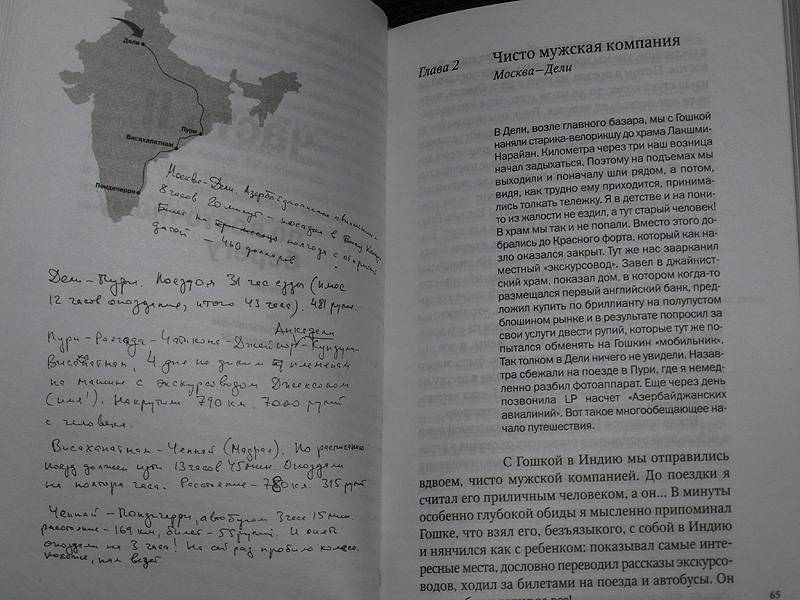 Дели
Пури
Висакхапатнам
Пондичерри
Москва–Дели. Азербайджанские авиалинии.
8 часов 20 минут – посадка в Баку.
Билет на полгода с обратной
датой – 460 долларов
Дели–Пури. Поездом 31 час езды (плюс
12 часов опоздание, итого 43 часа). 481 рупия.
Анкадели
Пури–Раягада–Чатикона–Джейпор–Кундули–
Висакхапатнам, 4 дня по диким племенам
на машине с экскурсоводом Джексоном
(имя!). Накрутили 790 км. 7000 рупий
с человека.
Висакхапатнам–Ченнай (Мадрас). По расписанию
поезд должен идти 13 часов 45 мин. Опоздали
на полтора часа. Расстояние – 780 км. 315 рупий
Ченнай–Пондичерри, автобусом 3 часа 15 мин.
расстояние – 169 км, билет – 55 рупий. И опять
опоздали на 3 часа! На сей раз пробило колесо.
похоже, нам везет
Глава 2
Чисто мужская компания
Москва—Дели
В Дели, возле главного базара, мы с Гошкой
наняли старика-велорикшу до храма Лакшми-
Нарайан. Километра через три наш возница
начал задыхаться. Поэтому на подъемах мы
выходили и поначалу шли рядом, а потом,
видя, как трудно ему приходится, принима-
лись толкать тележку. Я в детстве и на пони-
то из жалости не ездил, а тут старый человек!
В храм мы так и не попали. Вместо этого до-
брались до Красного форта, который как на-
зло оказался закрыт. Тут же нас заарканил
местный «экскурсовод». Завел в джайнист-
ский храм, показал дом, в котором когда-то
размещался первый английский банк, пред-
ложил купить по бриллианту на полупустом
блошином рынке и в результате попросил за
свои услуги двести рупий, которые тут же по-
пытался обменять на Гошкин «мобильник».
Так толком в Дели ничего не увидели. Назав-
тра сбежали на поезде в Пури, где я немед-
ленно разбил фотоаппарат. Еще через день
позвонила LP насчет «Азербайджанских
авиалиний». Вот такое многообещающее на-
чало путешествия.
С Гошкой в Индию мы отправились
вдвоем, чисто мужской компанией. До поездки я
считал его приличным человеком, а он... В минуты
особенно глубокой обиды я мысленно припоминал
Гошке, что взял его, безъязыкого, с собой в Индию
и нянчился как с ребенком: показывал самые инте-
ресные места, дословно переводил рассказы экскурсо-
водов, ходил за билетами на поезда и автобусы. Он
65